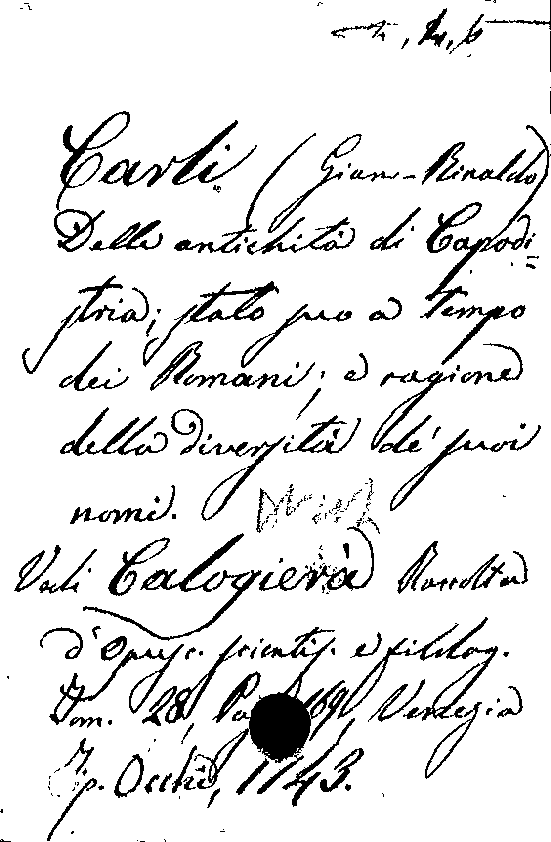 Carli (Gian-Rinaldo)
Delle antichità di Capodi
stria; stato suo a tempo
dei Romani; e ragione
della diversità de' suoi
nomi.
Vedi Calogierà Raccolta
d'Opusc. scientif. e filolog.
Tom. 28, Pag. 169, Venezia
Tip. Occhi, 1743.